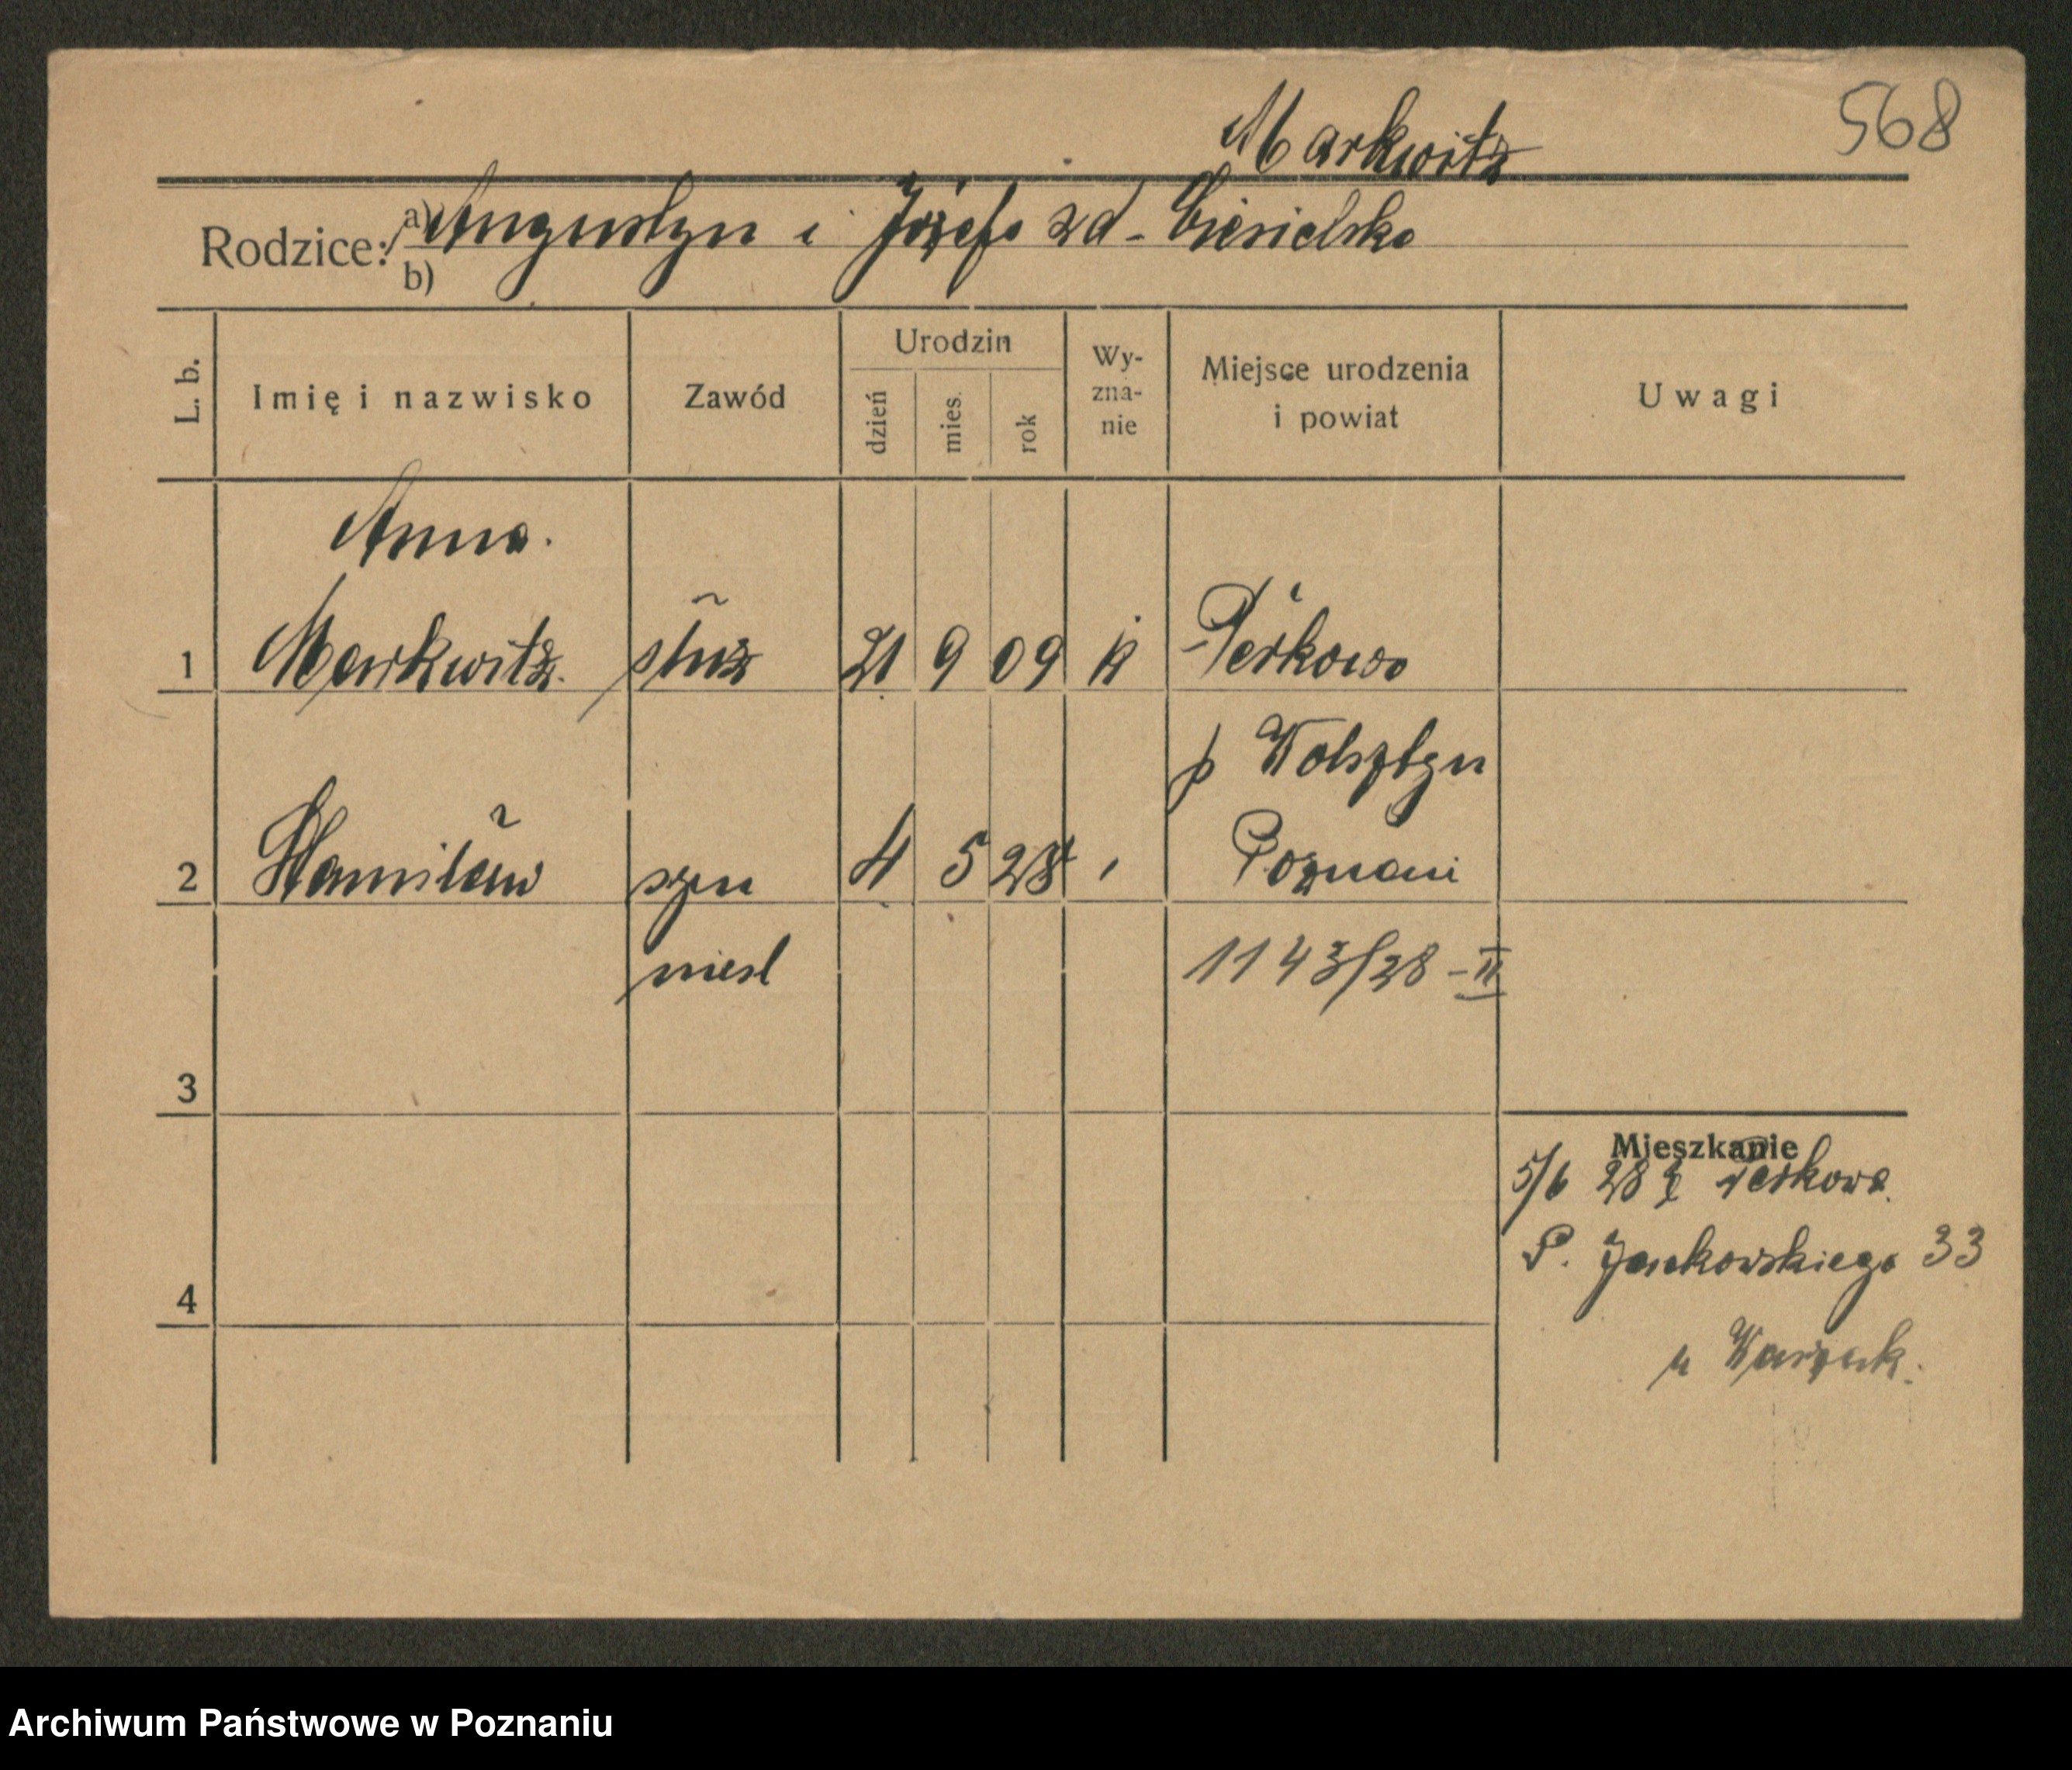 568
Markwitz
Rodzice: a) Augustyn i Józefa zd - Ciesielska
b)
L. b. Imię i nazwisko Zawód Urodzin dzień mies. rok Wy-zna-nie Miejsce urodzenia i powiat Uwagi
Anna.
1 Markwitz. służ 21 9 09 k Perkowo
p Wolsztyn
2 Stanisław syn 4 5 28 Poznań
niesl 1143/28 - II
3
Mieszkanie
5/6 28 z Perkowa
P. Jankowskiego 33
4
u
Archiwum Państwowe w Poznaniu